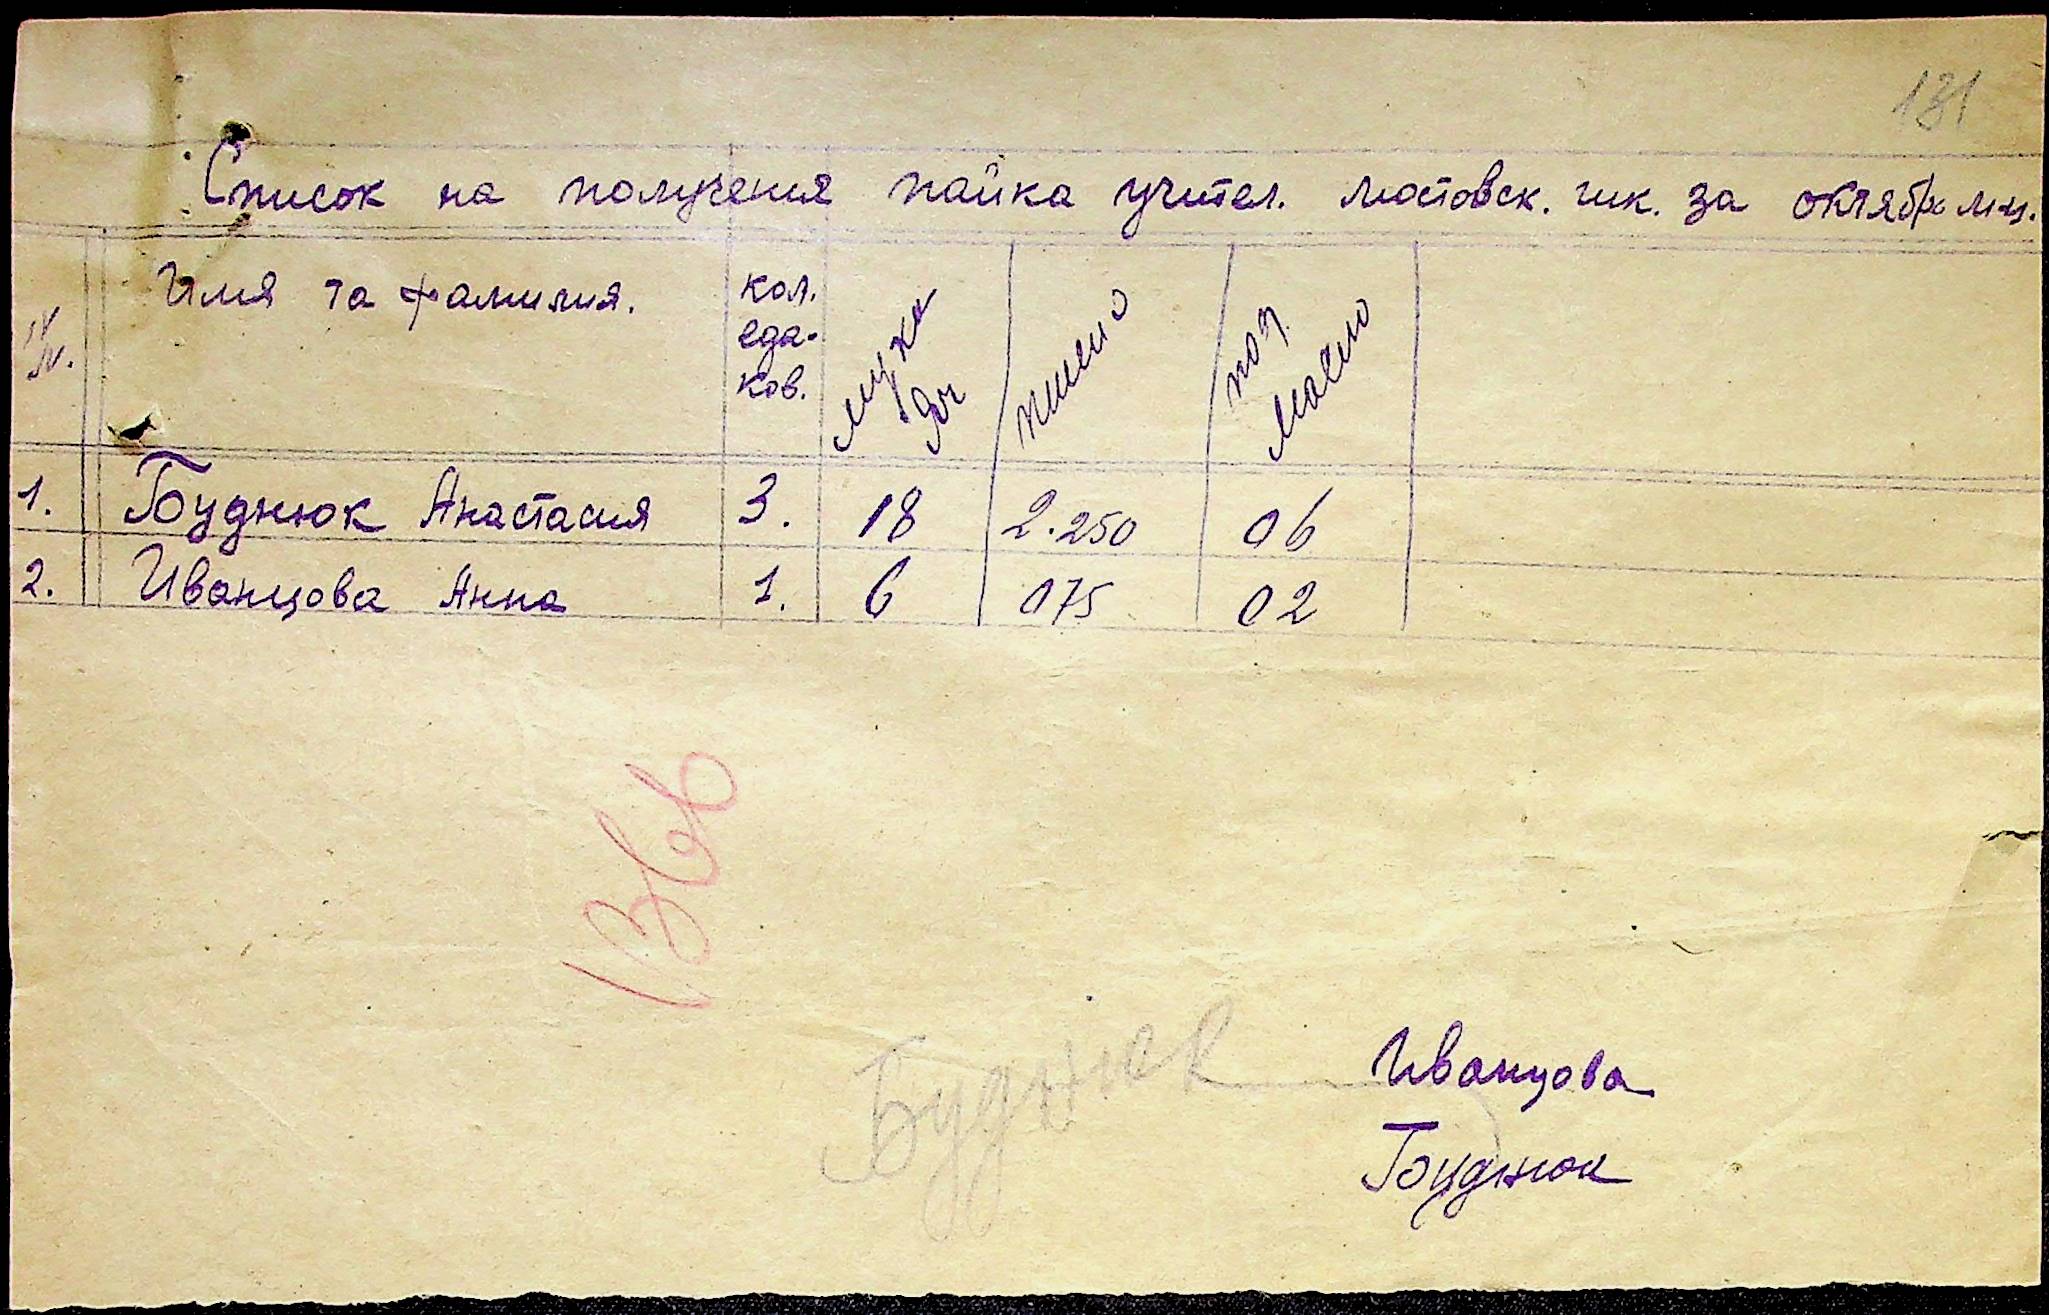 131
Список на получения пайка учител. мостовск. шк. за октябрь м-ц.
№ Имя та фамилия. кол. еда-ков. мука яч пшено под. масло
1. Буднюк Анастасия 3. 18 2.250 06
2. Иванцова Анна 1. 6 075 02
Иванцова
Буднюк
Буднюк